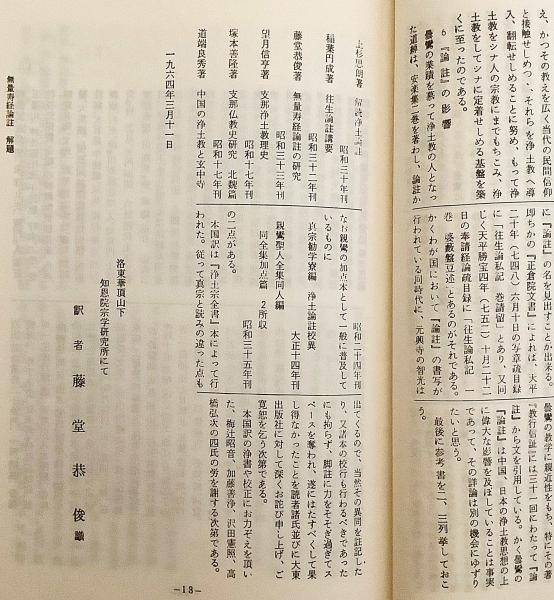 え、かつその教えを広く当代の民間信仰
と接触せしめつゝ、それらを浄土教へ導
入、翻転せしめることに努め、もって浄
土教をシナ人の宗教にまでもちこみ、浄
土教をしてシナに定着せしめる基盤を築
くに至ったのである。
6 『論註』の影響
曇鸞の業績を慕って浄土教の人となっ
た道綽は、安楽集二巻を著わし、論註か
に『論註』の名を見出すことが出来る。
即ちかの『正倉院文書』によれば、天平
二十年(七四八)六月十日の写章疏目録
に「往生論私記 巻請留」とあり、又同
じく天平勝宝四年(七五二)十月二十二
日の奉請経論疏目録に「往生論私記 一
巻 婆藪盤豆述」とあるのがそれである。
かくわが国において『論註』の書写が
行われている同時代に、元興寺の智光は
曇鸞の教学に親近性をもち、特にその著
『教行信証』には三十一回にわたって『論
註』から文を引用している。かく曇鸞の
『論註』は中国、日本の浄土教思想の上
に偉大な影響を及ぼしていることは事実
であって、その詳論は別の機会にゆずり
たいと思う。
最後に参考書を二、三列挙しておこ
う。
上杉思朗著 解読浄土論註
昭和三十年刊
稲葉円成著 往生論註講要
昭和三十二年刊
藤堂恭俊著 無量寿経論註の研究
昭和三十三年刊
望月信亨著 支那浄土教理史
昭和十七年刊
塚本善隆著 支那仏教史研究 北魏篇
昭和十七年刊
道端良秀著 中国の浄土教と玄中寺
昭和二十四年刊
なお親鸞の加点本として一般に普及して
いるものに
真宗勧学寮編 浄土論註校異
大正十四年刊
親鸞聖人全集同人編
同全集加点篇 2所収
昭和三十五年刊
の二点がある。
本国訳は『浄土宗全書』本によって行
われた。従って真宗と読みの違った点も
出てくるので、当然その異同を註記した
り、又諸本の校行も行わるべきであった
にも拘らず、脚註に力をそそぎ過ぎてス
ペースを奪われ、遂にはたすべくして果
し得なかったことを読者諸氏並びに大東
出版社に対して深くお詫び申し上げ、ご
寛恕を乞う次第である。
本国訳の浄書や校正にお力ぞえを頂い
た、梅辻昭音、加藤善浄、沢田憲照、高
橋弘次の四氏の労を謝する次第である。
一九六四年三月十一日
洛東華頂山下
知恩院宗学研究所にて
訳者 藤堂恭俊 識
無量寿経論註 解題
—13—